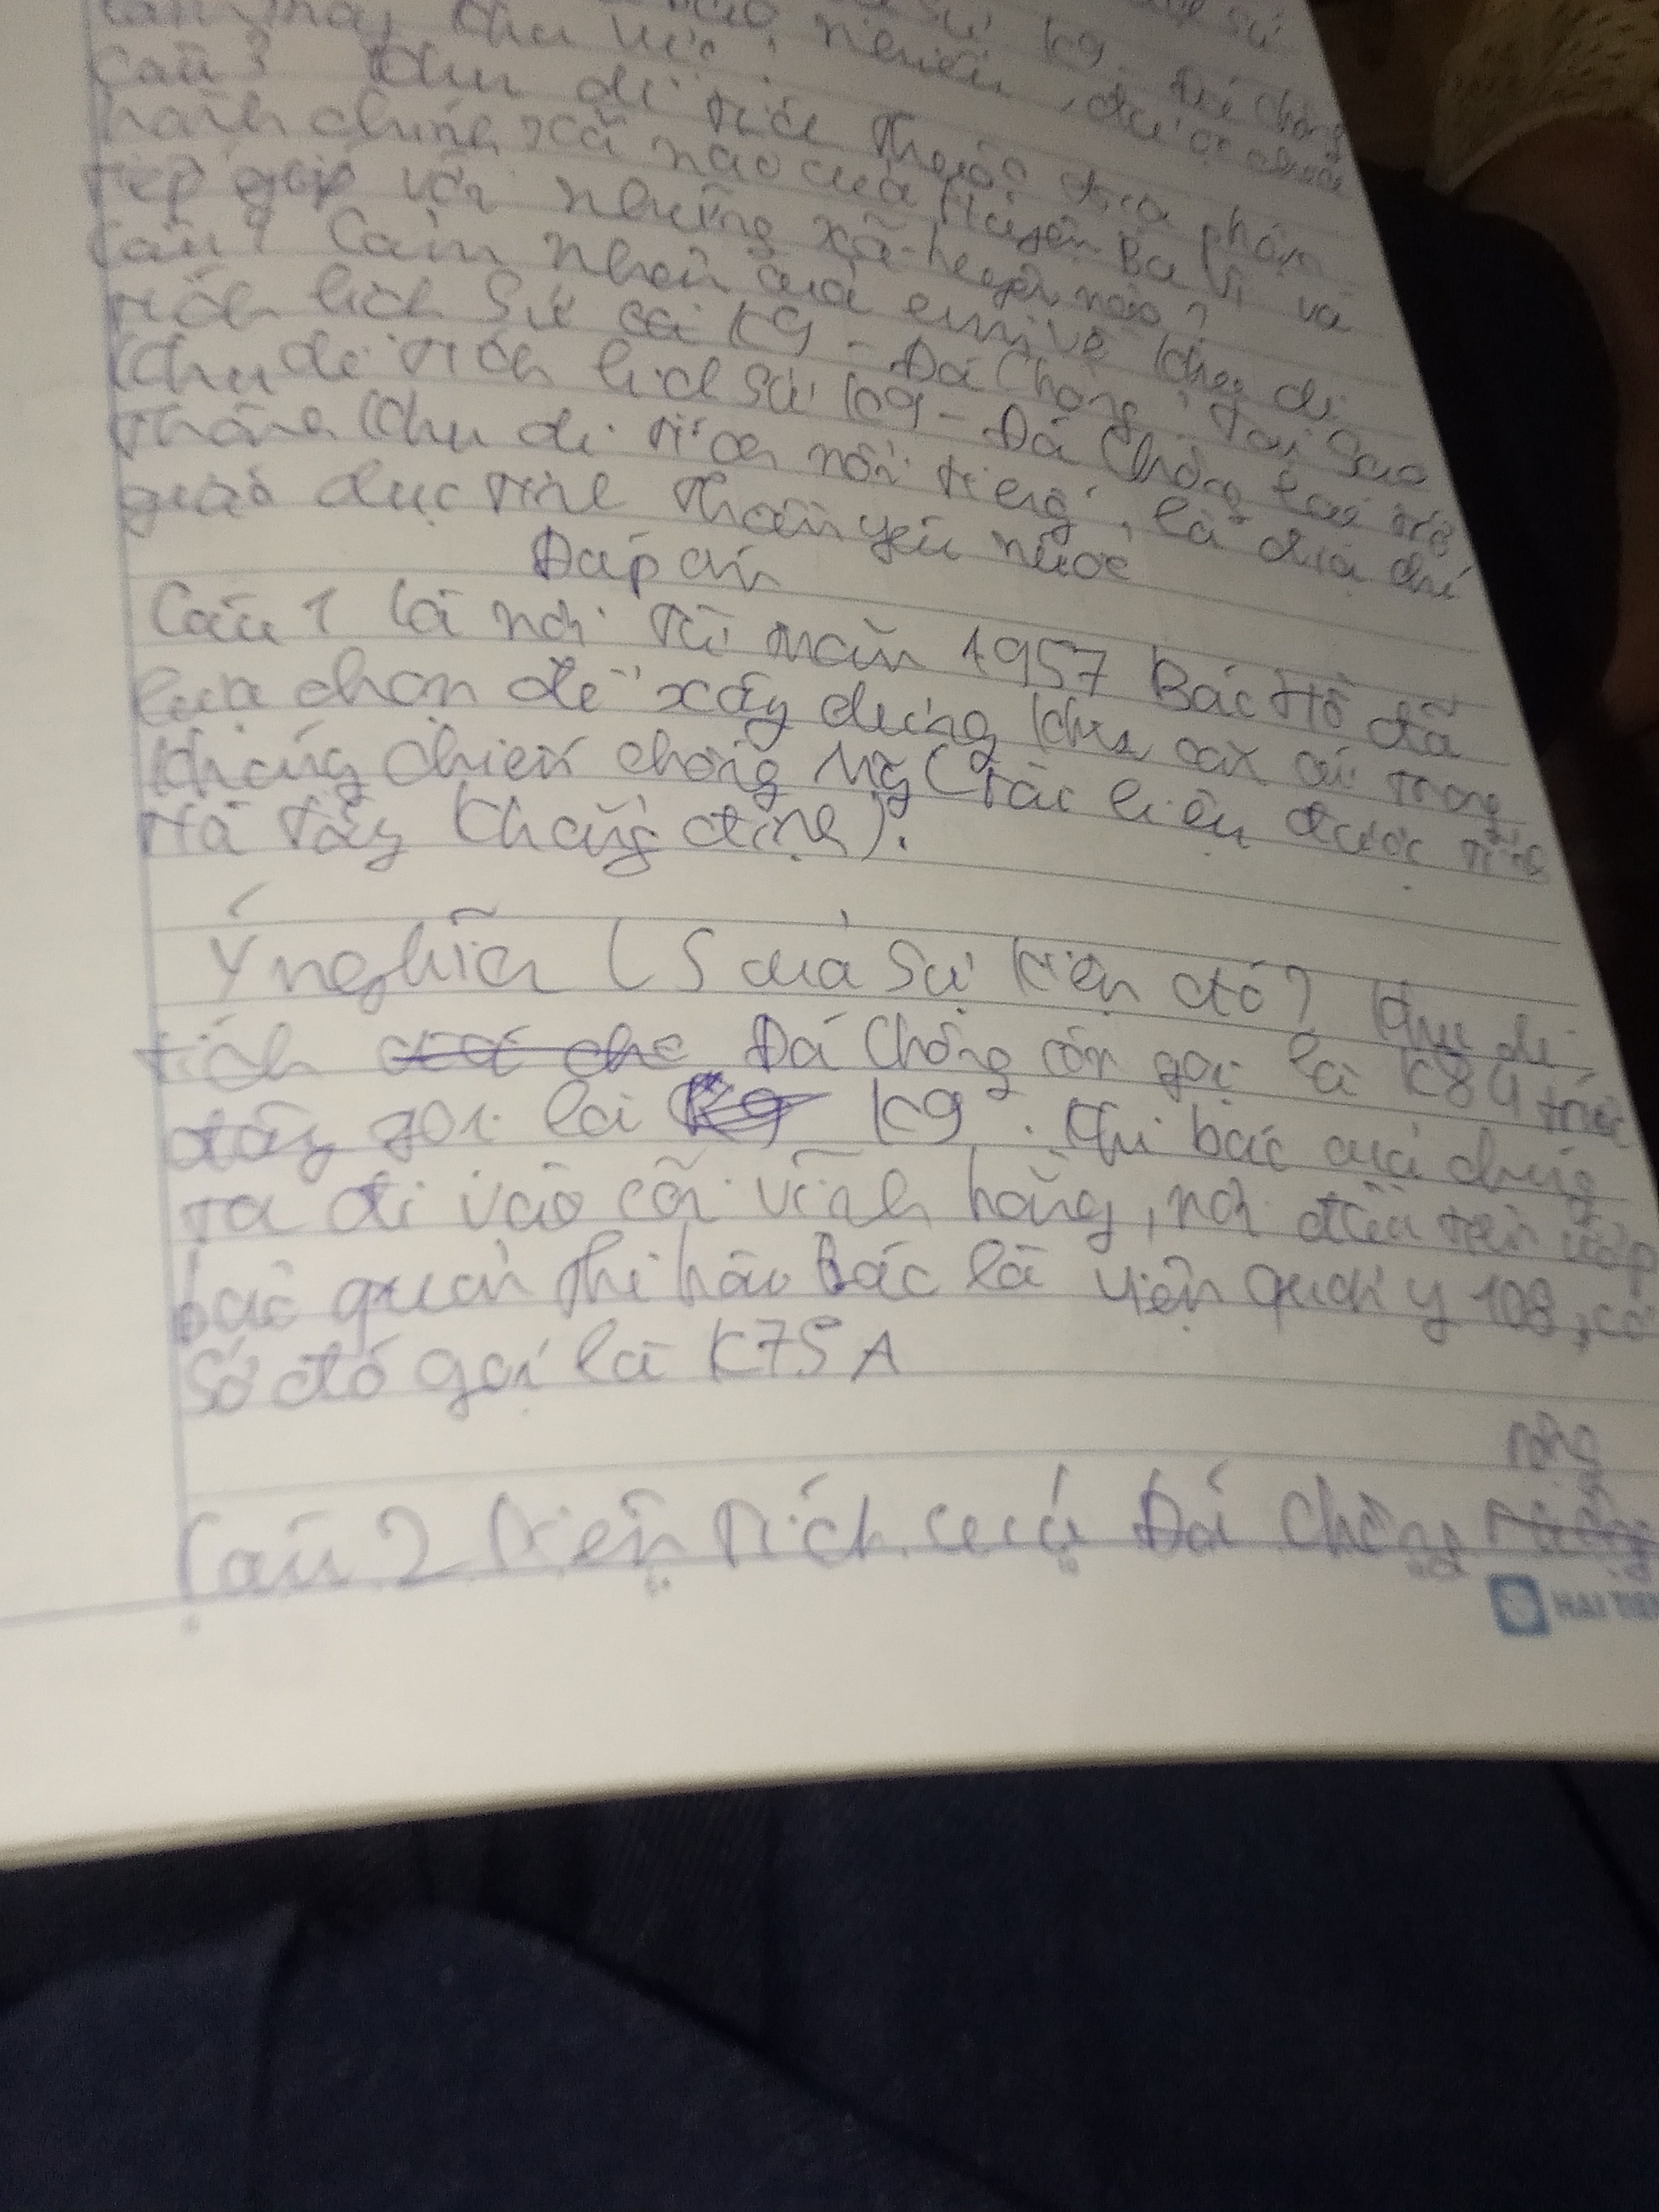 sử
K9 - Đá Chông
Câu 3 Khu di tích thuộc địa phận
hành chính xã nào của Huyện Ba Vì và
tiếp giáp với những xã-huyện nào?
Câu 4 Cảm nhận của em về khu di
tích lịch sử K9 - Đá Chông? Tại sao
khu di tích lịch sử K9 - Đá Chông lại trở
thành khu di tích nổi tiếng, là địa chỉ
giáo dục tinh thần yêu nước
Đáp án
Câu 1 là nơi từ năm 1957 Bác Hồ đã
lựa chọn để xây dựng khu căn cứ trong
kháng chiến chống Mỹ (Tài liệu được tỉnh
Hà Tây khẳng định).
Ý nghĩa LS của sự kiện đó? Khu di
tích Đá Chông còn gọi là K84 trước
đây gọi là K9. Khi bác của chúng
ta đi vào cõi vĩnh hằng, nơi đầu tiên ướp
bảo quản thi hài Bác là viện quân y 108, cơ
sở đó gọi là K75A
rộng
Câu 2 Diện tích của Đá Chông
HẢI TIẾN